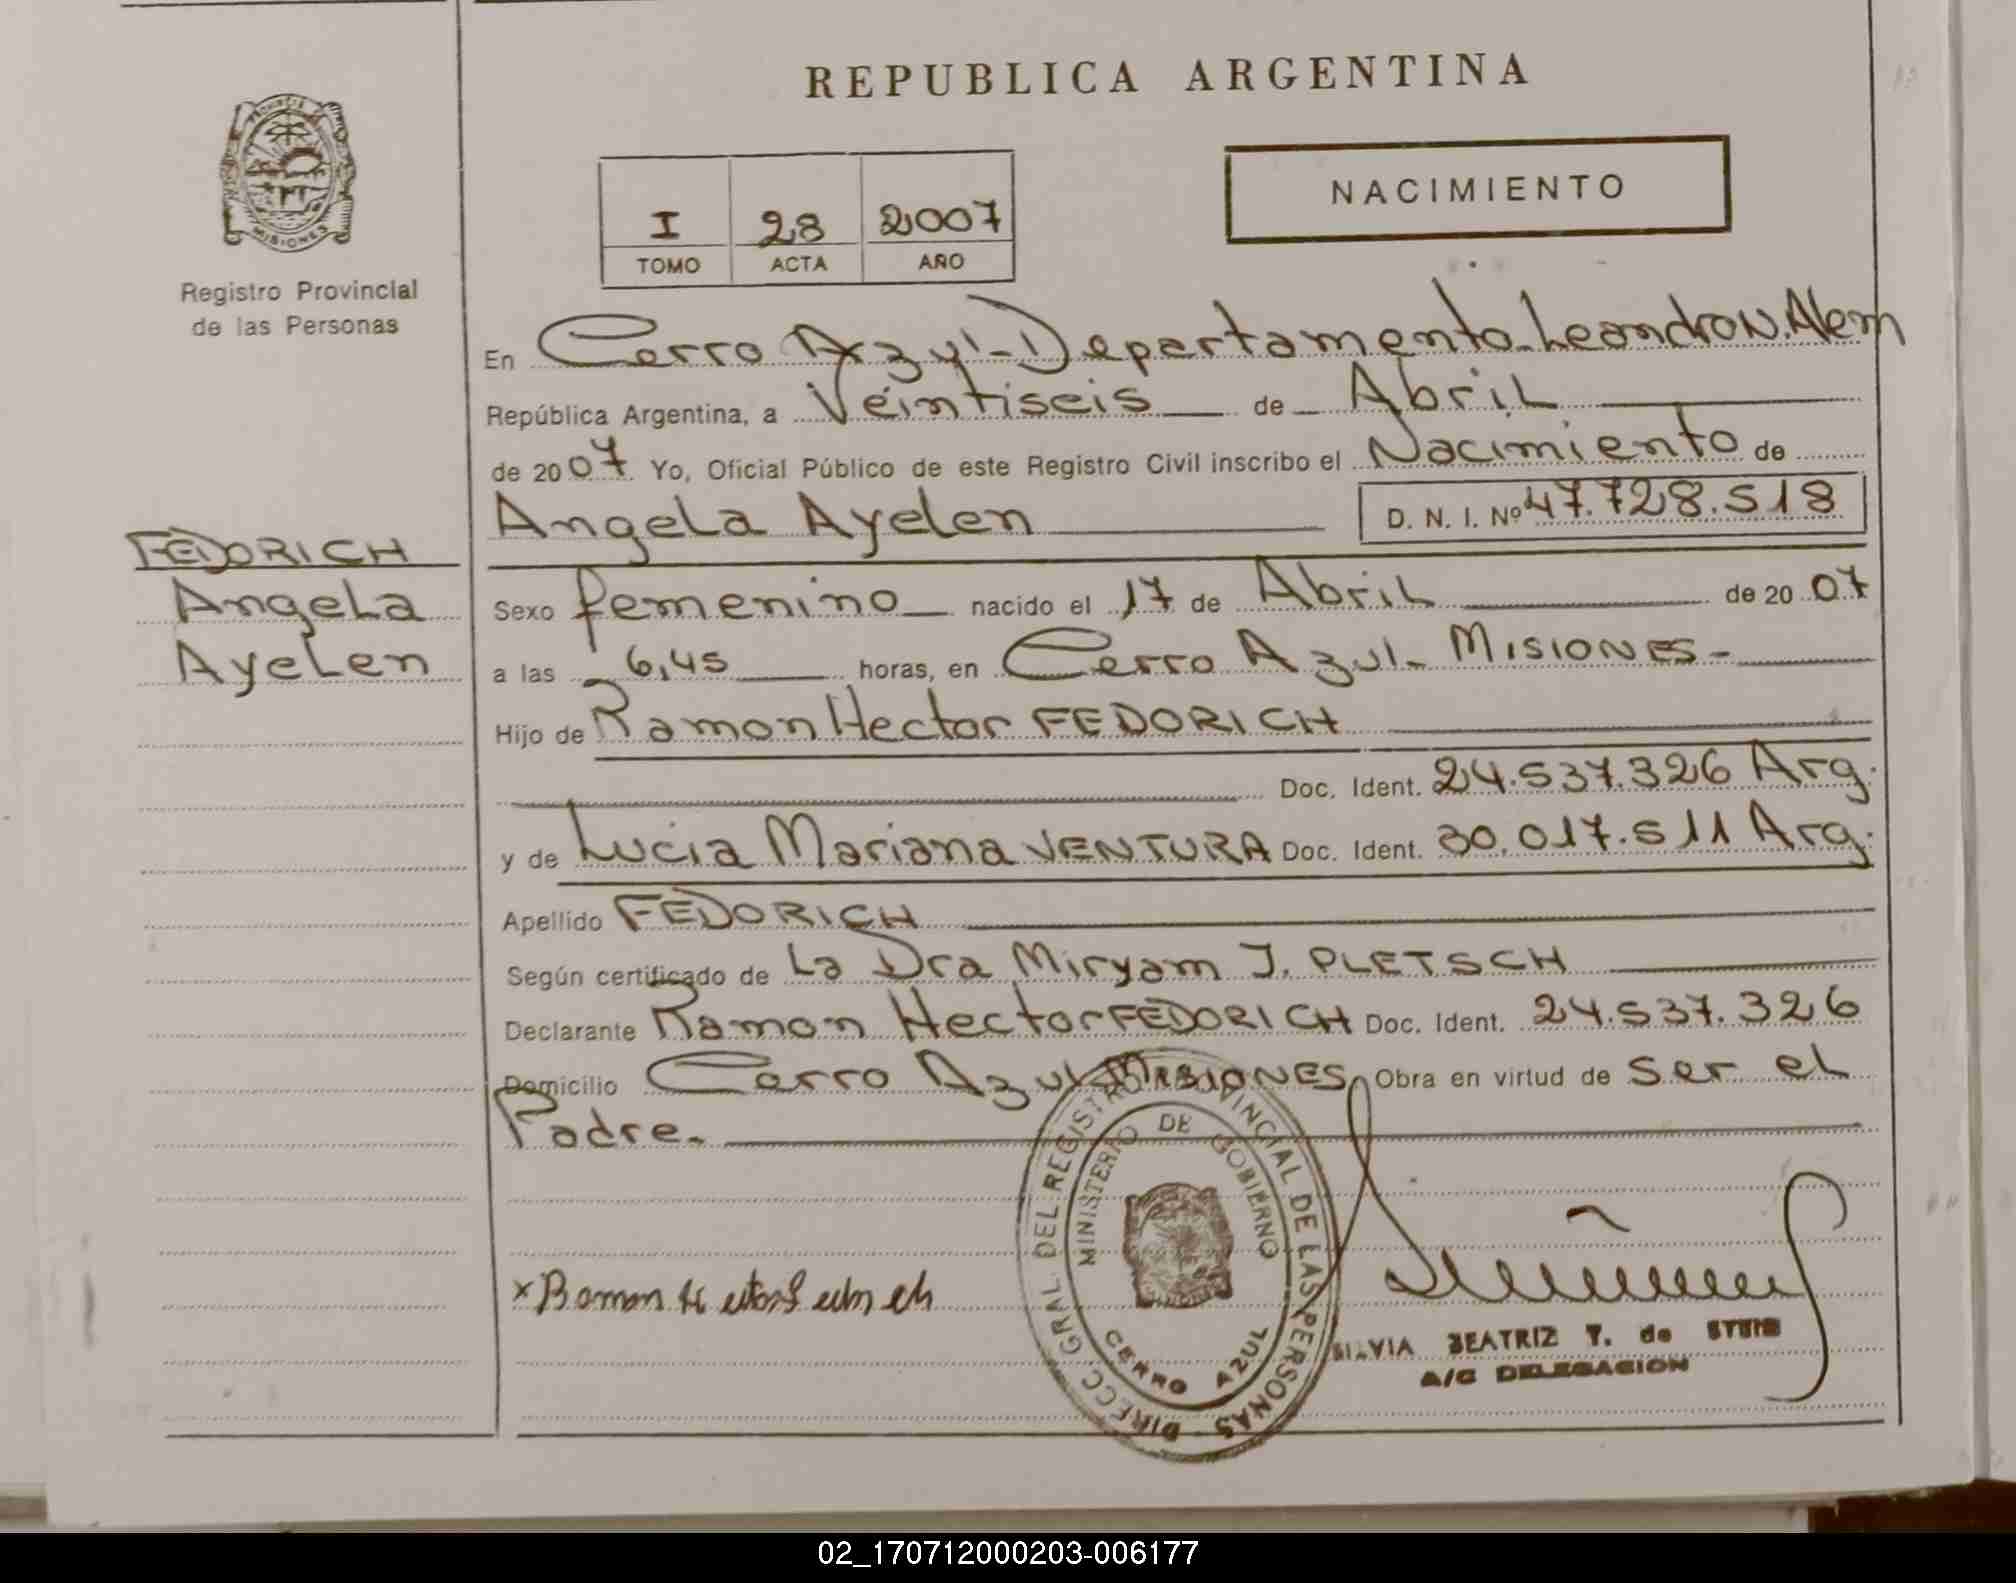 REPUBLICA ARGENTINA
NACIMIENTO
I 28 2007
TOMO ACTA AÑO
MISIONES
Registro Provincial
de las Personas
En Cerro Azul - Departamento Leandro N. Alem
República Argentina, a Veintiseis de Abril
de 2007 Yo, Oficial Público de este Registro Civil inscribo el Nacimiento de
Angela Ayelen D. N. I. Nº 47.728.518
FEDORICH
Angela
Ayelen
Sexo femenino nacido el 17 de Abril de 2007
a las 6,45 horas, en Cerro Azul - MISIONES -
Hijo de Ramon Hector FEDORICH
Doc. Ident. 24.537.326 Arg.
y de Lucia Mariana VENTURA Doc. Ident. 30.017.511 Arg.
Apellido FEDORICH
Según certificado de La Dra Miryam J. PLETSCH
Declarante Ramon Hector FEDORICH Doc. Ident. 24.537.326
Domicilio Cerro Azul MISIONES Obra en virtud de ser el
Padre.
DIRECC. GRAL. DEL REGISTRO PROVINCIAL DE LAS PERSONAS
MINISTERIO DE GOBIERNO
CERRO AZUL
x Ramon
SILVIA BEATRIZ T. de
A/C DELEGACION
02_170712000203-006177